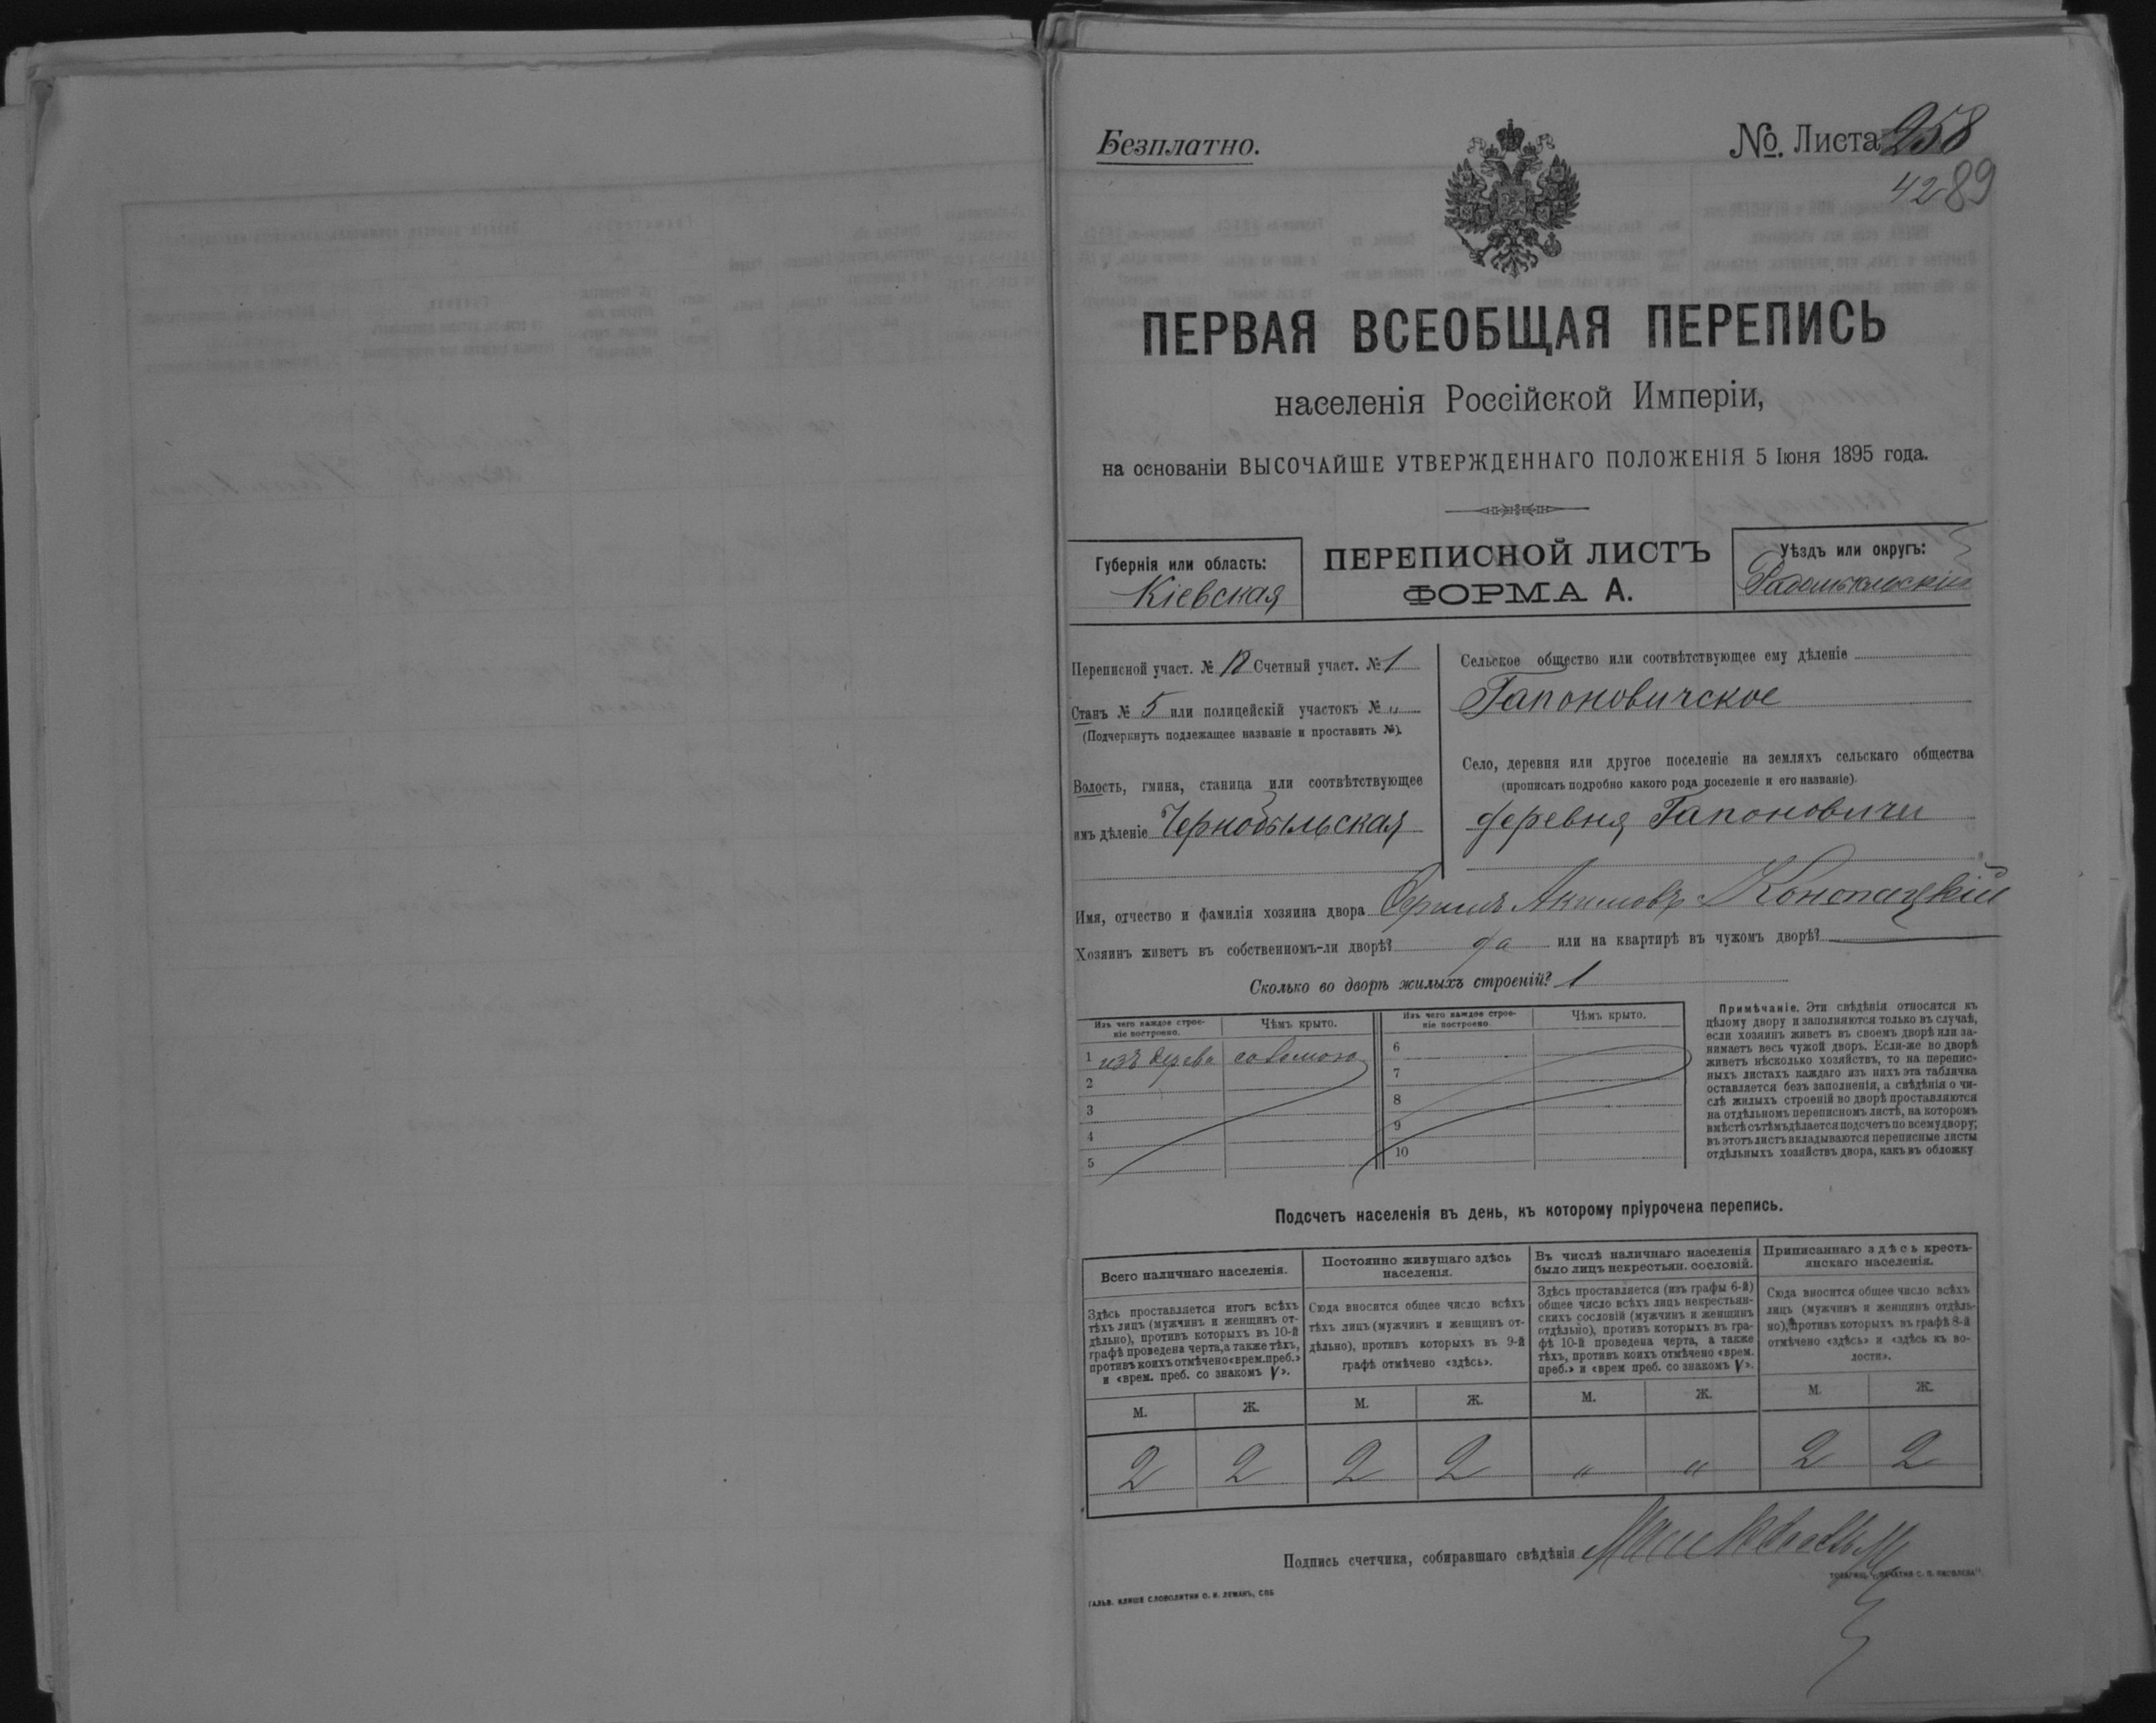 Безплатно.
№ Листа 258
4289
ПЕРВАЯ ВСЕОБЩАЯ ПЕРЕПИСЬ
населенія Россійской Имперіи,
на основаніи ВЫСОЧАЙШЕ УТВЕРЖДЕННАГО ПОЛОЖЕНІЯ 5 Іюня 1895 года.
Губернія или область:
Кіевская
ПЕРЕПИСНОЙ ЛИСТЪ
ФОРМА А.
Уѣздъ или округъ:
Радомысльскій
Переписной участ. № 12 Счетный участ. № 1
Станъ № 5 или полицейскій участокъ № „
(Подчеркнуть подлежащее названіе и проставить №).
Волость, гмина, станица или соотвѣтствующее
имъ дѣленіе Чернобыльская
Сельское общество или соотвѣтствующее ему дѣленіе
Гапоновичское
Село, деревня или другое поселеніе на земляхъ сельскаго общества
(прописать подробно какого рода поселеніе и его названіе).
деревня Гапоновичи
Имя, отчество и фамилія хозяина двора Акимовъ Конопацкій
Хозяинъ живетъ въ собственномъ-ли дворѣ? да или на квартирѣ въ чужомъ дворѣ?
Сколько во дворѣ жилыхъ строеній? 1
Изъ чего каждое строе-
ніе построено.
Чѣмъ крыто.
1 изъ дерева соломою
2
3
4
5
Изъ чего каждое строе-
ніе построено.
Чѣмъ крыто.
6
7
8
9
10
Примѣчаніе. Эти свѣдѣнія относятся къ
цѣлому двору и заполняются только въ случаѣ,
если хозяинъ живетъ въ своемъ дворѣ или за-
нимаетъ весь чужой дворъ. Если-же во дворѣ
живетъ нѣсколько хозяйствъ, то на перепис-
ныхъ листахъ каждаго изъ нихъ эта табличка
оставляется безъ заполненія, а свѣдѣнія о чи-
слѣ жилыхъ строеній во дворѣ проставляются
на отдѣльномъ переписномъ листѣ, на которомъ
вмѣстѣ съ тѣмъ дѣлается подсчетъ по всему двору;
въ этотъ листъ вкладываются переписные листы
отдѣльныхъ хозяйствъ двора, какъ въ обложку
Подсчетъ населенія въ день, къ которому пріурочена перепись.
Всего наличнаго населенія.
Здѣсь проставляется итогъ всѣхъ
тѣхъ лицъ (мужчинъ и женщинъ от-
дѣльно), противъ которыхъ въ 10-й
графѣ проведена черта, а также тѣхъ,
противъ коихъ отмѣчено «врем. преб.»
и «врем. преб. со знакомъ V».
М. Ж.
2 2
Постоянно живущаго здѣсь
населенія.
Сюда вносится общее число всѣхъ
тѣхъ лицъ (мужчинъ и женщинъ от-
дѣльно), противъ которыхъ въ 9-й
графѣ отмѣчено «здѣсь».
М. Ж.
2 2
Въ числѣ наличнаго населенія
было лицъ некрестьян. сословій.
Здѣсь проставляется (изъ графы 6-й)
общее число всѣхъ лицъ некрестьян-
скихъ сословій (мужчинъ и женщинъ
отдѣльно), противъ которыхъ въ гра-
фѣ 10-й проведена черта, а также
тѣхъ, противъ коихъ отмѣчено «врем.
преб.» и «врем преб. со знакомъ V».
М. Ж.
„ „
Приписаннаго здѣсь кресть-
янскаго населенія.
Сюда вносится общее число всѣхъ
лицъ (мужчинъ и женщинъ отдѣль-
но), противъ которыхъ въ графѣ 8-й
отмѣчено «здѣсь» и «здѣсь къ во-
лости».
М. Ж.
2 2
Подпись счетчика, собиравшаго свѣдѣнія
ГАЛЬВ. КЛИШЕ СЛОВОЛИТНИ О. И. ЛЕМАНЪ, СПБ